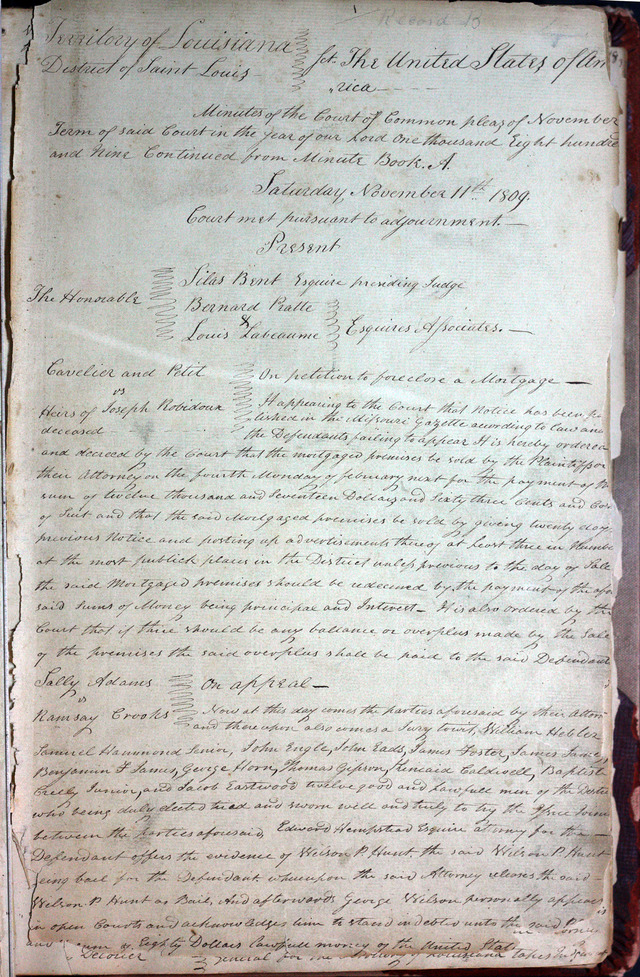 Record 10
Territory of Louisiana
District of Saint Louis
sct. The United States of Am
"rica
Minutes of the Court of Common pleas of November
Term of said Court in the year of our Lord One thousand Eight hundre
and Nine Continued from Minute Book. A.
Saturday November 11th 1809.
Court met pursuant to adjournment.
Present
The Honorable
Silas Bent Esquire presiding Judge
Bernard Pratte
&
Louis Labeaume Esquires Associates.
Cavelier and Petit
vs
Heirs of Joseph Robidoux
deceased
On petition to foreclose a Mortgage
It appearing to the Court that Notice has been pu
blished in the Missouri Gazette according to Law and
the Defendants failing to appear It is hereby ordered
and decreed by the Court that the mortgaged premises be sold by the Plaintiffs or
their Attorney on the fourth Monday of february next for the payment of the
sum of twelve thousand and Seventeen Dollars and Sixty three Cents and Cos
of Suit and that the said Mortgaged premises be sold by giving twenty days
previous Notice and posting up advertisements thereof at least three in Numbe
at the most publick places in the District unless previous to the day of Sale
the said Mortgaged premises should be redeemed by the payment of the afor
said Sums of Money being principal and Interest It is also ordered by the
Court that if there should be any ballance or overplus made by the Sale
of the premises the said overplus shall be paid to the said Defendant
Sally Adams
vs
Ramsay Crooks
On appeal
Now at this day comes the parties aforesaid by their Attor
and thereupon also comes a Jury towit, William Hebler
Samuel Hammond Senior, John Engle, John Eads, James Foster, James James
Benjamin F James, George Horn, Thomas Gipson, Kincaid Caldwell, Baptiste
Creely Junior, and Jacob Eastwood twelve good and lawfull men of the District
who being duly elected tried and sworn well and truly to try the Issue Joined
between the parties aforesaid, Edward Hempstead Esquire attorney for the
Defendant offers the evidence of Wilson P. Hunt, the said Wilson P. Hunt
being bail for the Defendant whereupon the said Attorney releases the said
Wilson P Hunt as Bail, And afterwards George Wilson personally appears
in open Courts and acknowledges him to stand indebted unto the said
and sum of Eighty Dollars Lawfull money of the United Stat
General for the Territory of Louisiana takes